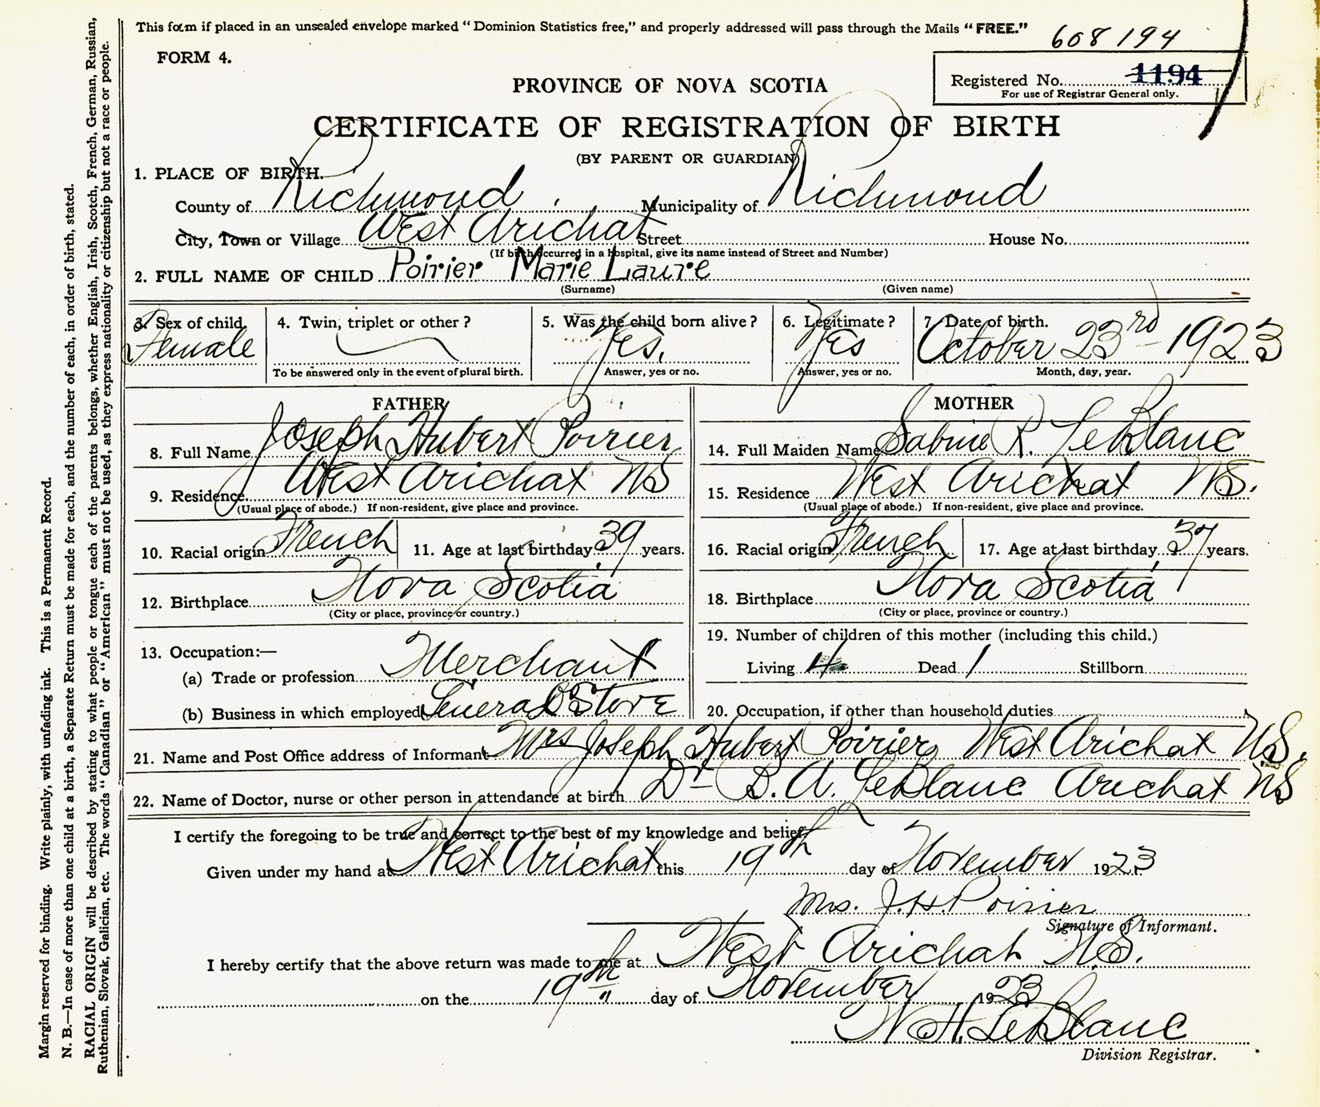 This form if placed in an unsealed envelope marked "Dominion Statistics free," and properly addressed will pass through the Mails "FREE."
608194
FORM 4.
Registered No. 1194
For use of Registrar General only.
PROVINCE OF NOVA SCOTIA
CERTIFICATE OF REGISTRATION OF BIRTH
(BY PARENT OR GUARDIAN)
1. PLACE OF BIRTH.
County of Richmond Municipality of Richmond
City, Town or Village West Arichat Street House No.
(If birth occurred in a hospital, give its name instead of Street and Number)
2. FULL NAME OF CHILD Poirier Marie Laure
(Surname) (Given name)
3. Sex of child Female
4. Twin, triplet or other?
To be answered only in the event of plural birth.
5. Was the child born alive?
Yes.
Answer, yes or no.
6. Legitimate?
Yes
Answer, yes or no.
7. Date of birth.
October 23rd 1923
Month, day, year.
FATHER
8. Full Name Joseph Hubert Poirier
9. Residence West Arichat NS
(Usual place of abode.) If non-resident, give place and province.
10. Racial origin French 11. Age at last birthday 39 years.
12. Birthplace Nova Scotia
(City or place, province or country.)
13. Occupation:—
(a) Trade or profession Merchant
(b) Business in which employed General Store
MOTHER
14. Full Maiden Name Sabine R. LeBlanc
15. Residence West Arichat NS.
(Usual place of abode.) If non-resident, give place and province.
16. Racial origin French 17. Age at last birthday, 37 years.
18. Birthplace Nova Scotia
(City or place, province or country.)
19. Number of children of this mother (including this child.)
Living 4 Dead 1 Stillborn
20. Occupation, if other than household duties
21. Name and Post Office address of Informant Mrs Joseph Hubert Poirier, West Arichat N.S.
22. Name of Doctor, nurse or other person in attendance at birth Dr B. A. LeBlanc Arichat NS
I certify the foregoing to be true and correct to the best of my knowledge and belief.
Given under my hand at West Arichat this 19th day of November 1923
Mrs. J. H. Poirier
Signature of Informant.
I hereby certify that the above return was made to me at West Arichat N.S.
on the 19th day of November 1923
W. H. LeBlanc
Division Registrar.
Margin reserved for binding. Write plainly, with unfading ink. This is a Permanent Record.
N. B.—In case of more than one child at a birth, a Separate Return must be made for each, and the number of each, in order of birth, stated.
RACIAL ORIGIN will be described by stating to what people or tongue each of the parents belongs, whether English, Irish, Scotch, French, German, Russian,
Ruthenian, Slovak, Galician, etc. The words "Canadian" or "American" must not be used, as they express nationality or citizenship but not a race or people.